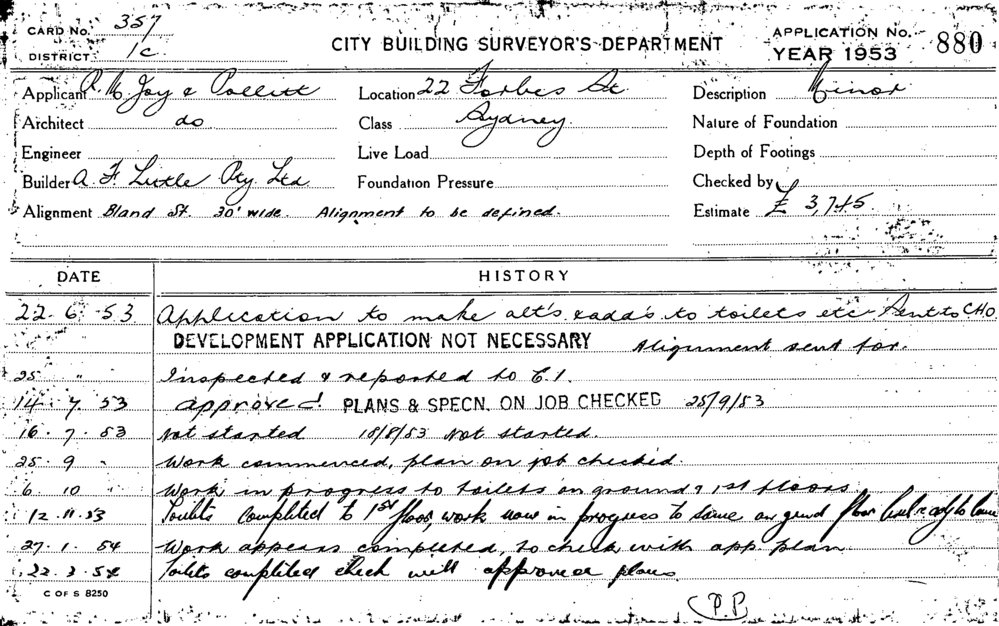 CARD No. 357
DISTRICT 1C
CITY BUILDING SURVEYOR'S DEPARTMENT
APPLICATION No. 880
YEAR 1953
Applicant Joy & Pollitt
Location 22 Forbes St
Description Minor
Architect do
Class Sydney
Nature of Foundation
Engineer
Live Load
Depth of Footings
Builder A. F. Little Pty Ltd
Foundation Pressure
Checked by
Alignment Bland St. 30' wide. Alignment to be defined.
Estimate £ 3,745
DATE HISTORY
22. 6. 53 Application to make alt's & add's to toilets etc Sent to CHO
DEVELOPMENT APPLICATION NOT NECESSARY Alignment sent for.
25 " Inspected & reported to C.I.
14. 7. 53 Approved. PLANS & SPECN. ON JOB CHECKED 25/9/53
16. 7. 53 Not started 18/8/53 Not started.
25. 9 " Work commenced, plan on job checked.
6 10 Work in progress to toilets on ground & 1st floors
12. 11. 53 Toilets completed to 1st floor, work now in progress to same on grnd floor
27. 1. 54 Work appears completed, to check with app. plan.
22. 3. 54 Toilets completed check with approved plans
C OF S 8250
P.P